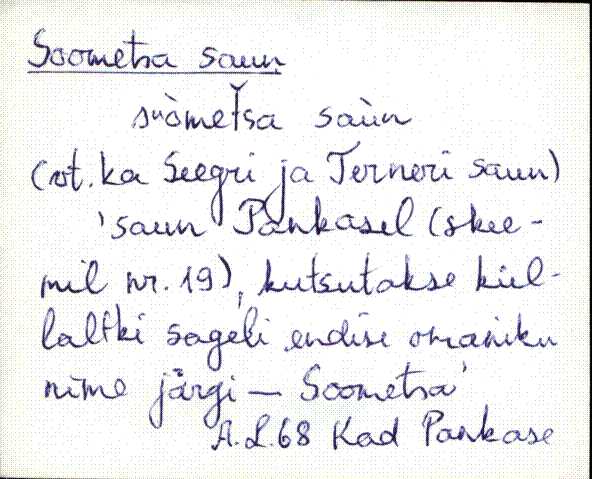 Soometsa saun
suòmeťsa saùn
(vt. ka Seegri ja Terneri saun)
'saun Pankasel (skee-
mil nr. 19), kutsutakse kül-
laltki sageli endise omaniku
nime järgi — Soometsa'
A.L. 68 Kad Pankase